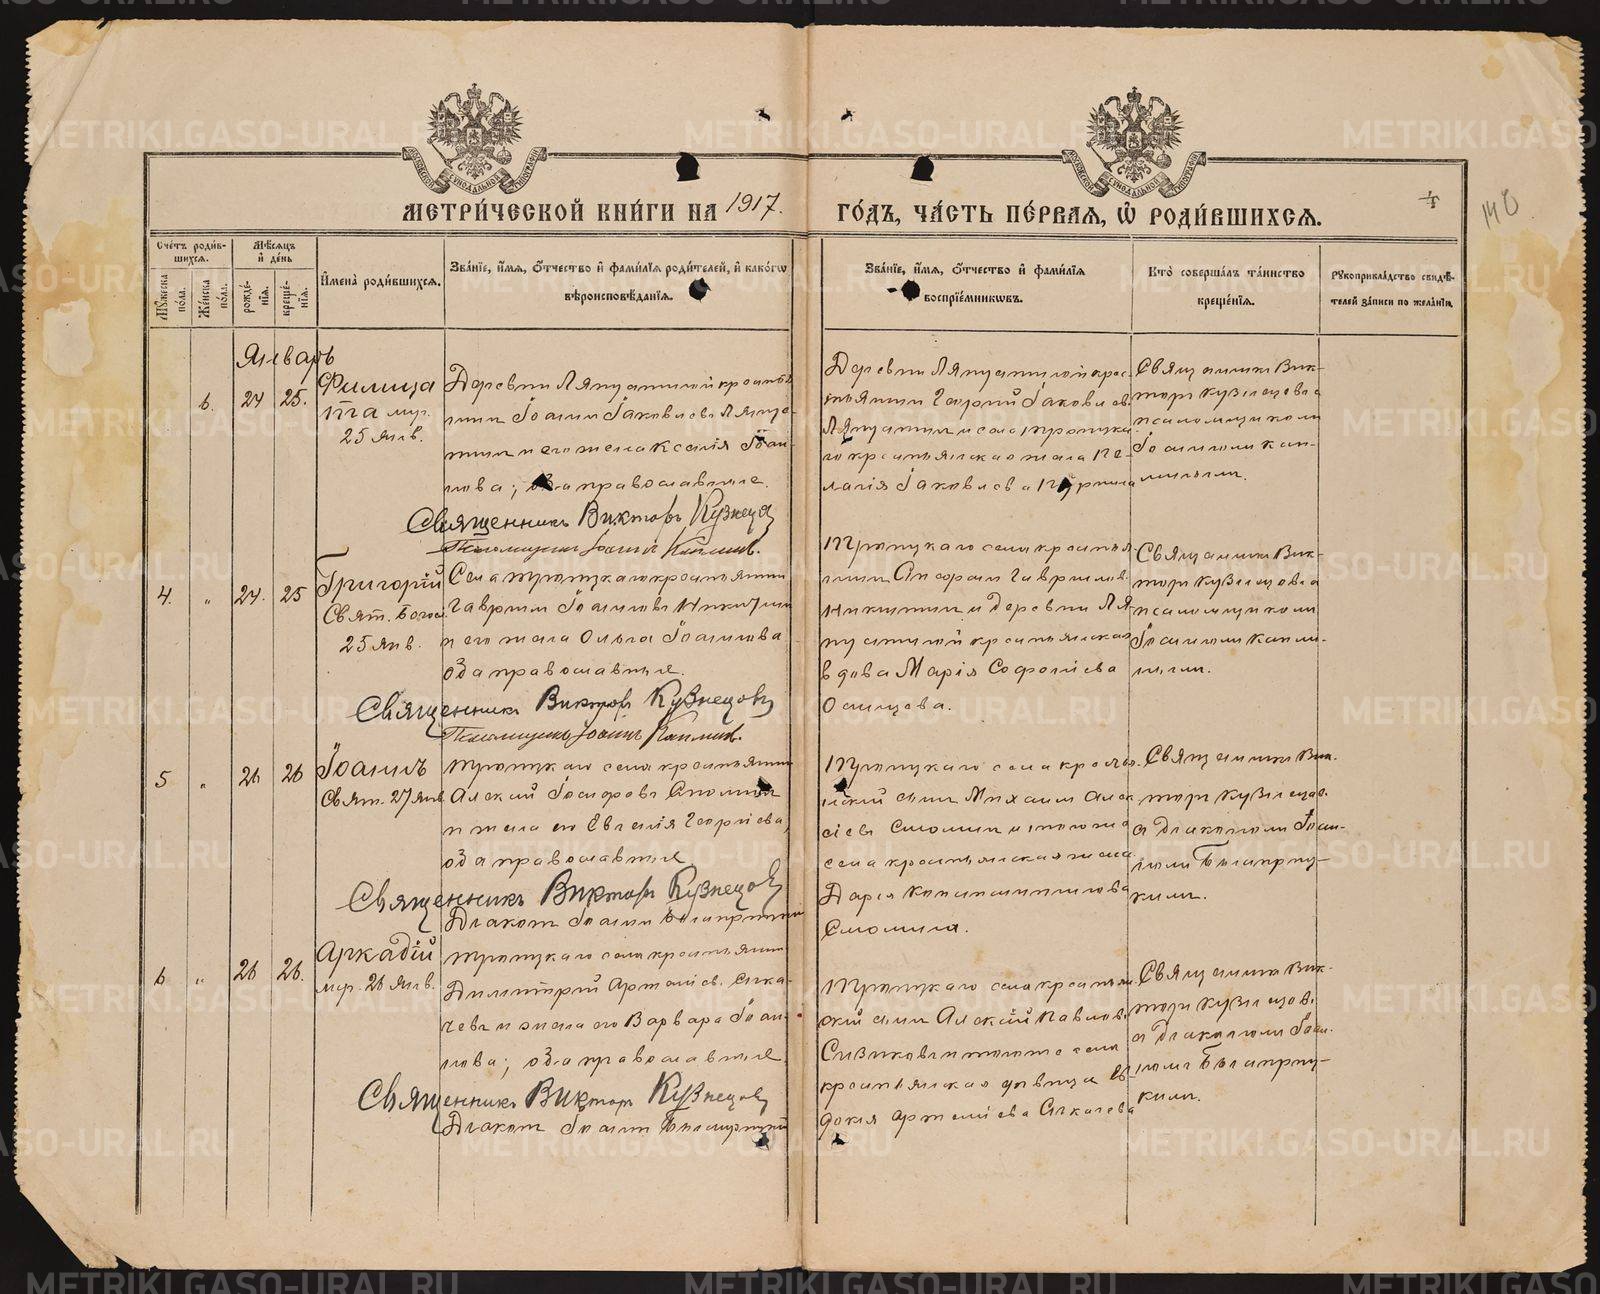 МЕТРИ́ЧЕСКОЙ КНИ́ГИ НА 1917.
ГО́ДЪ, ЧА́СТЬ ПЕ́РВАЯ, Ѽ РОДИ́ВШИХСЯ.
4
140.
Сче́тъ роди́в-
шихся.
Мѣ́сяцъ
и҆ де́нь
Мꙋ́жеска
по́ла.
Же́нска
по́ла.
рожде́-
нїѧ.
креще́-
нїѧ.
И҆мена̀ роди́вшихся.
Зва́нїе, и҆́мя, ѻ҆́тчество и҆ фами́лїя роди́телей, и҆ како́гѡ
вѣроисповѣ́данїя.
Зва́нїе, и҆́мя, ѻ҆́тчество и҆ фами́лїя
воспрїе́мникѡвъ.
Кто̀ соверша́лъ та́инство
креще́нїя.
Рꙋкоприкла́дство свидѣ́-
телей за́писи по жела́нїю.
Январь
6. 24 25.
Филица
та муч.
25 янв.
Деревни Ляпустиной кресть
янин Іоанн Іаковлевъ Ляпу-
стин и его жена Ксенія Іоан-
нова; оба православные.
Священникъ Викторъ Кузнецов
Псаломщикъ Іоаннъ Каплин.
Деревни Ляпустиной крес-
тьянин Георгий Іаковлев
Ляпустин и села Троицка
го крестьянская жена Пе-
лагія Іаковлева
Священник Вик-
тор Кузнецов с
псаломщиком
Іоанном Кап-
линым.
4. " 24. 25
Григорій
Свят. Богос.
25 янв.
Села Троицкаго крестьянин
Гавриил Іоаннов Никитин
и его жена Ольга Іоаннова
оба православные.
Священникъ Викторъ Кузнецовъ
Псаломщикъ Іоаннъ Каплин.
Троицкаго села крестья
нин Гаврилов
Никитин и деревни Ля-
пустиной крестьянская
вдова Марія Софоніева
Осинцева.
Священник Вик-
тор Кузнецов с
псаломщиком
Іоанном Капли-
ным.
5 " 26 26
Іоаннъ
Свят. 27 янв.
Троицкаго села крестьянин
Алексій Іосифовъ Смолин
и жена его Евгенія Георгіева,
оба православные
Священникъ Викторъ Кузнецовъ
Диакон Іоанн
Троицкаго села кресть-
янский сын Михаил Алек
сіевъ Смолин и того же
села крестьянская жена
Дарія Константинова
Смолина.
Священник Вик-
тор Кузнецов
с диаконом Іоан-
ном
ким.
6 " 26 26.
Аркадій
мор. 26 янв.
Троицкаго села крестьянин
Димитрій Артеміев. Сыка-
чевъ и жена его Варвара Іоан-
нова; оба православные
Священникъ Викторъ Кузнецовъ
Диакон Іоанн
Троицкаго села крестьян
ский сын Алексій Павлов
Сивиков и того же села
крестьянская девица Ев-
докія Артеміева Сыкачева
Священник Вик-
тор Кузнецов
с диаконом Іоан-
ном
ким.
METRIKI.GASO-URAL.RU